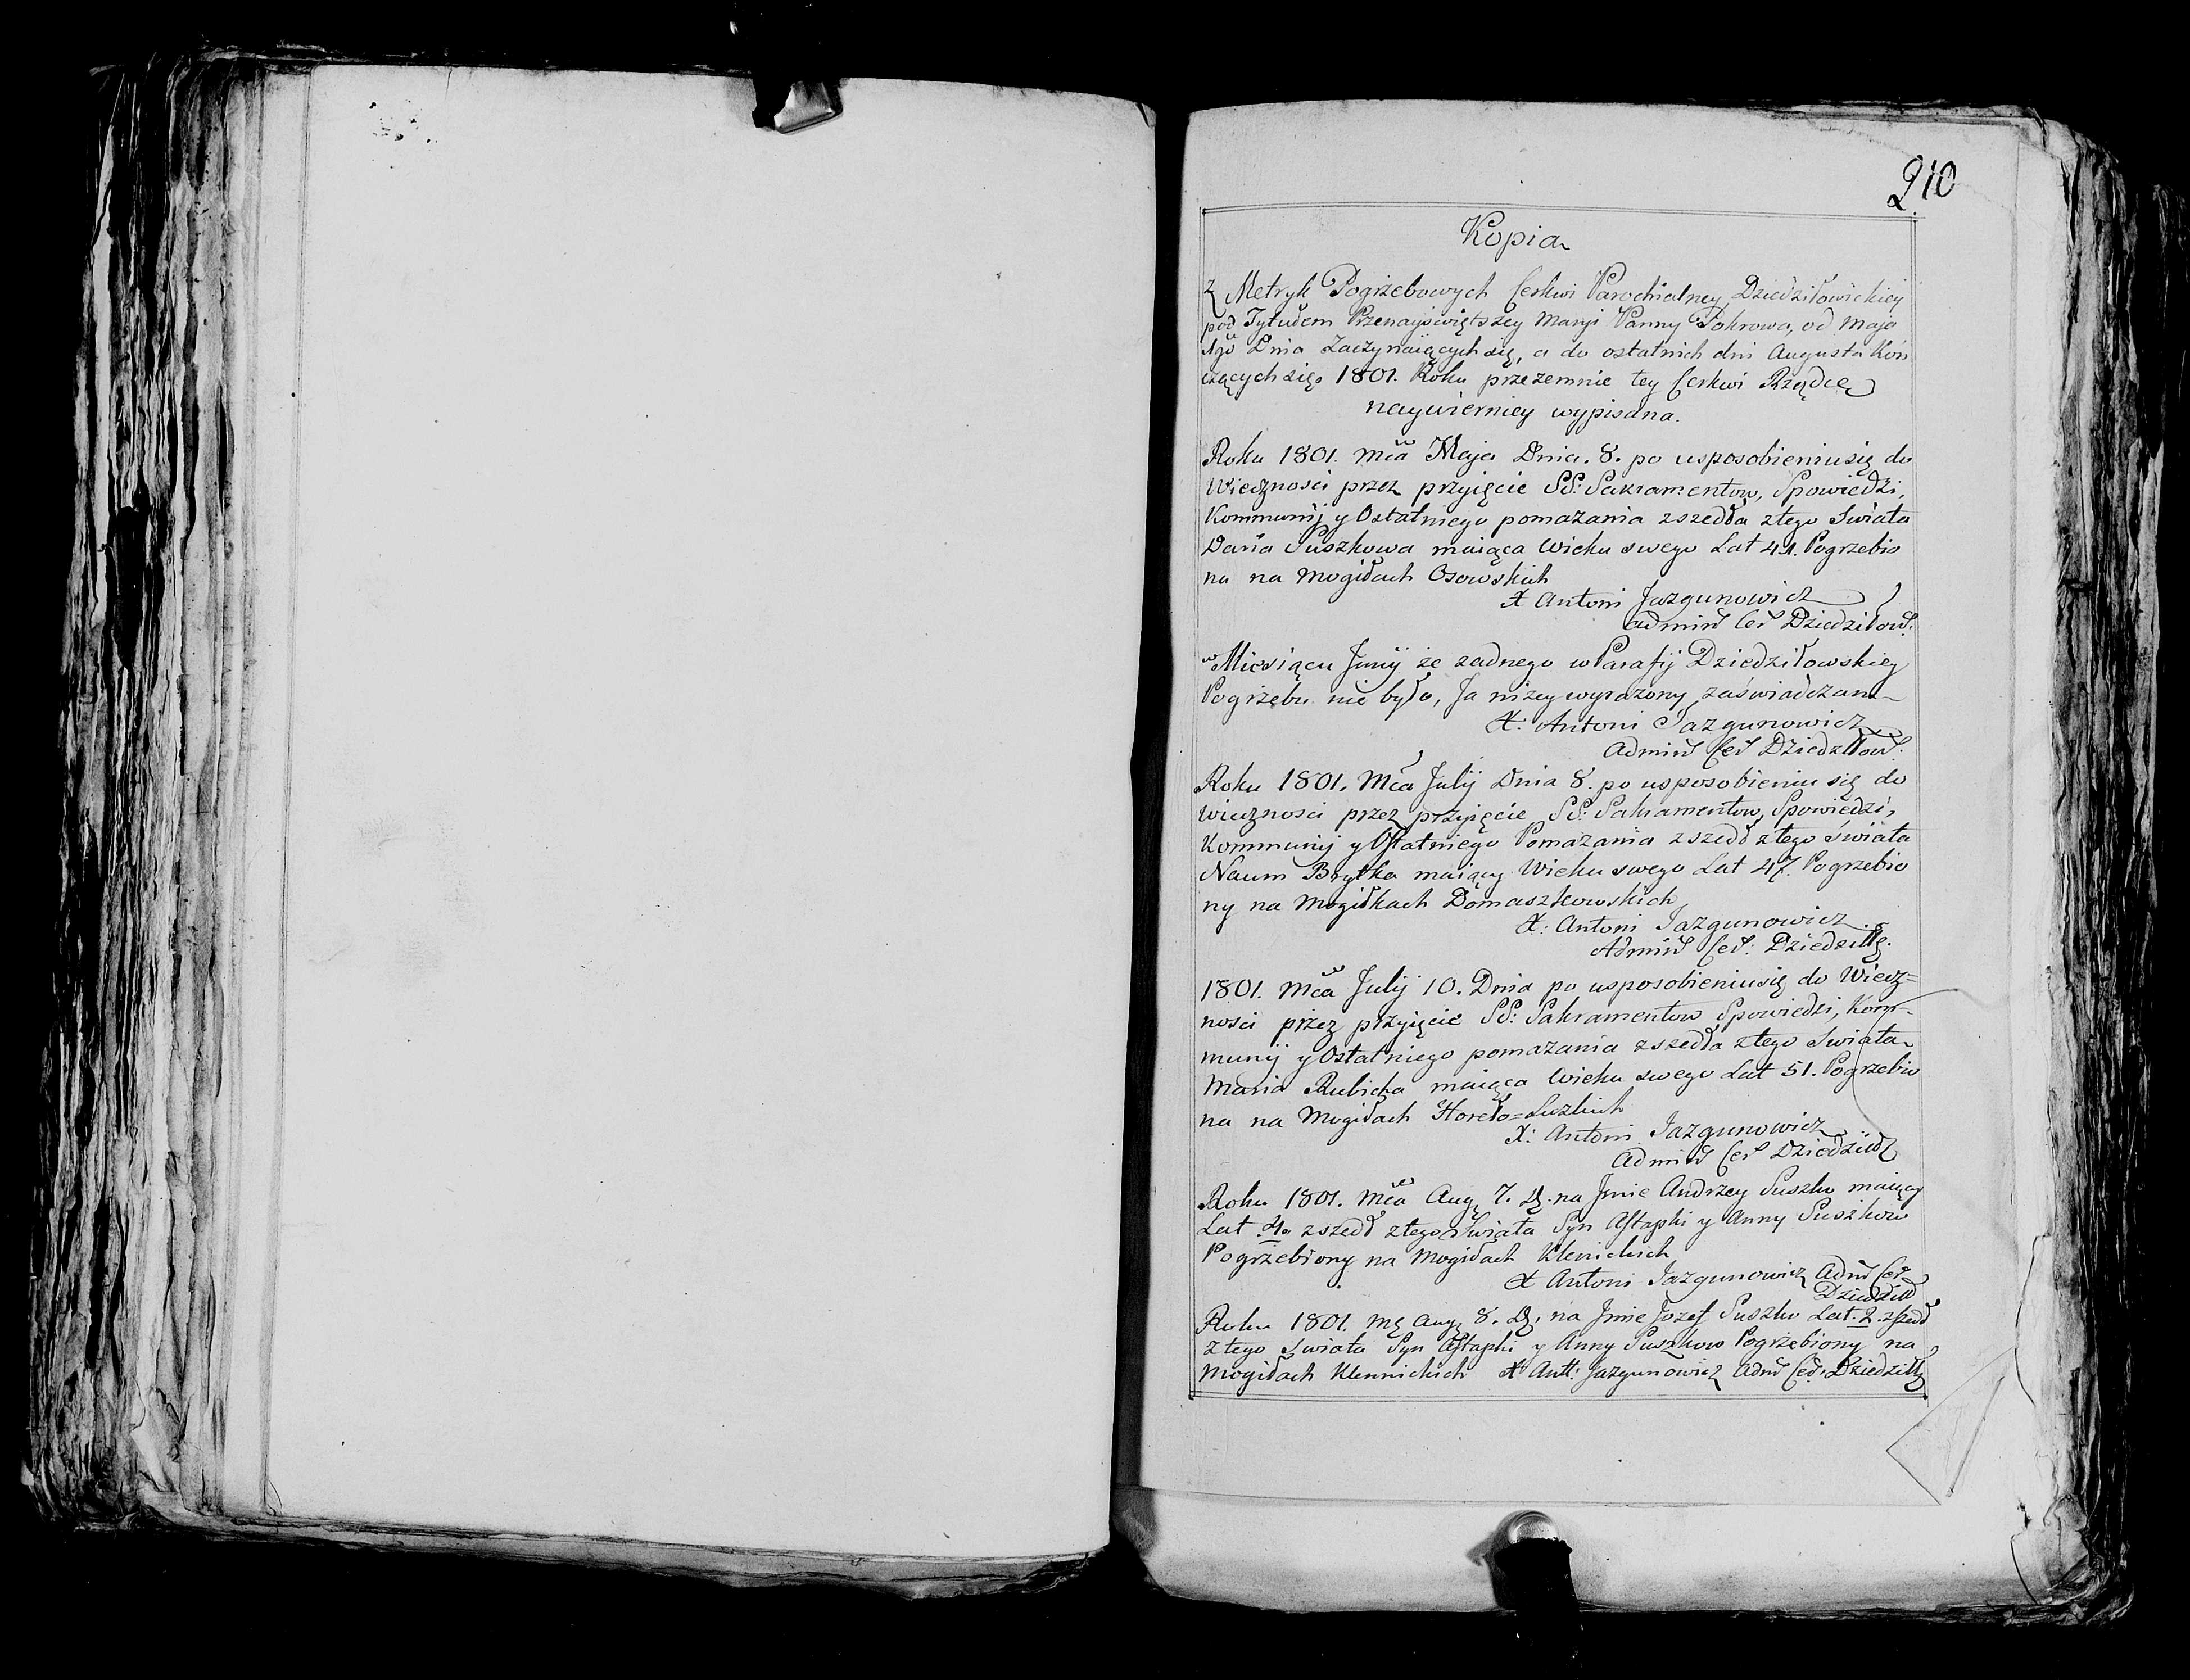 210
Kopia
z Metryk Pogrzebowych Cerkwi Parochialney Dziedziłowickiey
pod Tytułem Przenayświętszey Maryi Panny Pokrowa, od Maja
1go Dnia Zaczynaiących się, a do ostatnich dni Augusta Koń
czących się 1801. Roku przezemnie tey Cerkwi Rządcę
naywierniey wypisana.
Roku 1801. Mca Maja Dnia. 8. po usposobieniu się do
Wiecznosci przez przyięcie SS: Sakramentow, Spowiedzi,
Kommunij y Ostatniego pomazania zszedła z tego Swiata
Daria Suszkowa maiąca Wieku swego Lat 41. Pogrzebio
na na Mogiłach Osowskich
X Antoni Jazgunowicz
Admin Cer Dziedziłow:
w Miesiącu Junij że żadnego w Parafij Dziedziłowskiey
Pogrzebu nie było, Ja niżey wyrażony zaświadczam
X: Antoni Jazgunowicz
Admin Cer Dziedziłow:
Roku 1801. Mca Julij Dnia 8. po usposobieniu się do
wiecznosci przez przyięcie SS: Sakramentow, Spowiedzi,
Kommunij y Ostatniego Pomazania zszedł z tego świata
Naum Brytka maiący Wieku swego Lat 47. Pogrzebio
ny na Mogiłkach Domaszkowskich
X: Antoni Jazgunowicz
Admin Cer: Dziedziłł:
1801. Mca Julij 10. Dnia po usposobieniu się do Wiecz=
nosci przez przyięcie SS: Sakramentow Spowiedzi, Kom-
munij y Ostatniego pomazania zszedła z tego Swiata
Maria Rubicka maiąca Wieku swego Lat 51. Pogrzebio
na na Mogiłach Horeło=Luzkich
X: Antoni Jazgunowicz
Admin Cer Dziedził
Roku 1801. Mca Aug 7. D. na Jmie Andrzey Suszko maiący
Lat 4. zszedł z tego Swiata Syn Astapki y Anny Suszkow
Pogrzebiony na Mogiłach Klenickich
X Antoni Jazgunowicz Adm Cer
Dziedził
Roku 1801. Mę Aug 8. D. na Jmie Jozef Suszko Lat. 2. zszedł
z tego Swiata Syn Astapki y Anny Suszkow Pogrzebiony na
Mogiłach Klennickich X Ant: Jazgunowicz Adm Cer. Dziedziłł